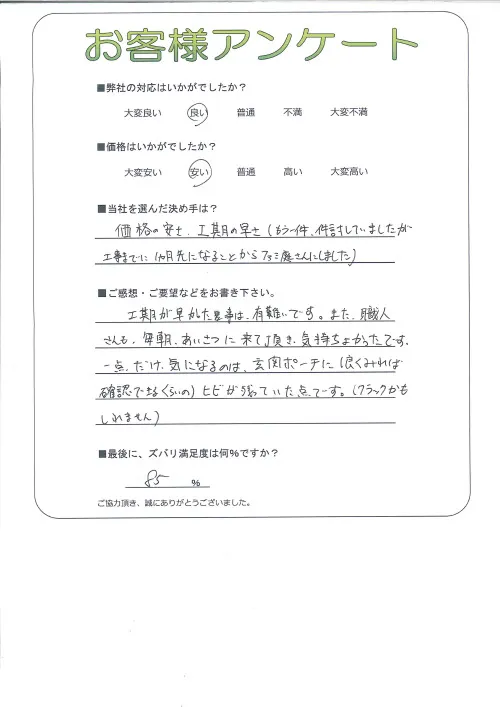 お客様アンケート
■弊社の対応はいかがでしたか？
大変良い 良い 普通 不満 大変不満
■価格はいかがでしたか？
大変安い 安い 普通 高い 大変高い
■当社を選んだ決め手は？
価格の安さ、工期の早さ(もう一件、件討していましたが
工事までに1ヵ月先になることからファミ庭さんにしました)
■ご感想・ご要望などをお書き下さい。
工期が早かった事は、有難いです。また、職人
さんも、毎朝、あいさつに来て頂き、気持ちよかったです。
一点、だけ、気になるのは、玄関ポーチに(良くみれば
確認できるくらいの)ヒビが残っていた点です。(クラックかも
しれません)
■最後に、ズバリ満足度は何％ですか？
85 %
ご協力頂き、誠にありがとうございました。